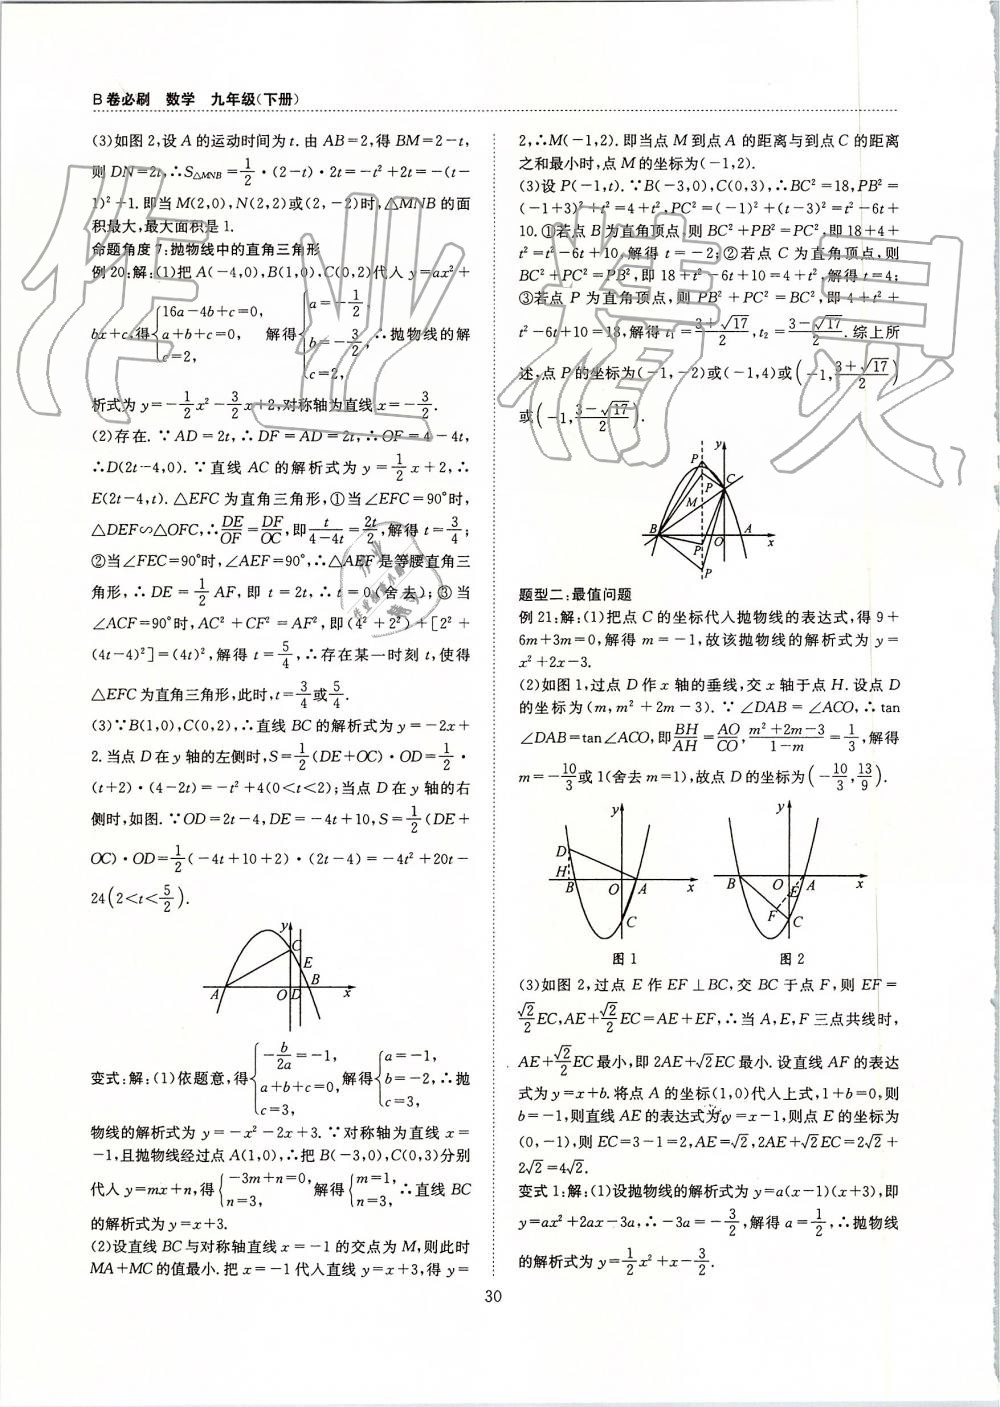 B卷必刷 数学 九年级(下册)
(3)如图2,设A的运动时间为t.由AB=2,得BM=2-t,
则DN=2t,∴S△MNB=1/2·(2-t)·2t=-t²+2t=-(t-
1)²+1.即当M(2,0),N(2,2)或(2,-2)时,△MNB的面
积最大,最大面积是1.
命题角度7:抛物线中的直角三角形
例20:解:(1)把A(-4,0),B(1,0),C(0,2)代入y=ax²+
bx+c,得{16a-4b+c=0, a+b+c=0, c=2, 解得{a=-1/2, b=-3/2, c=2, ∴抛物线的解
析式为y=-1/2x²-3/2x+2,对称轴为直线x=-3/2.
(2)存在.∵AD=2t,∴DF=AD=2t,∴OF=4-4t,
∴D(2t-4,0).∵直线AC的解析式为y=1/2x+2,∴
E(2t-4,t).△EFC为直角三角形,①当∠EFC=90°时,
△DEF∽△OFC,∴DE/OF=DF/OC,即t/(4-4t)=2t/2,解得t=3/4;
②当∠FEC=90°时,∠AEF=90°,∴△AEF是等腰直角三
角形,∴DE=1/2AF,即t=2t,∴t=0(舍去);③当
∠ACF=90°时,AC²+CF²=AF²,即(4²+2²)+[2²+
(4t-4)²]=(4t)²,解得t=5/4,∴存在某一时刻t,使得
△EFC为直角三角形,此时,t=3/4或5/4.
(3)∵B(1,0),C(0,2),∴直线BC的解析式为y=-2x+
2.当点D在y轴的左侧时,S=1/2(DE+OC)·OD=1/2·
(t+2)·(4-2t)=-t²+4(0<t<2);当点D在y轴的右
侧时,如图.∵OD=2t-4,DE=-4t+10,S=1/2(DE+
OC)·OD=1/2(-4t+10+2)·(2t-4)=-4t²+20t-
24(2<t<5/2).
y
C
E
A O D B x
变式:解:(1)依题意,得{-b/2a=-1, a+b+c=0, c=3, 解得{a=-1, b=-2, c=3, ∴抛
物线的解析式为y=-x²-2x+3.∵对称轴为直线x=
-1,且抛物线经过点A(1,0),∴把B(-3,0),C(0,3)分别
代入y=mx+n,得{-3m+n=0, n=3, 解得{m=1, n=3, ∴直线BC
的解析式为y=x+3.
(2)设直线BC与对称轴直线x=-1的交点为M,则此时
MA+MC的值最小.把x=-1代入直线y=x+3,得y=
2,∴M(-1,2).即当点M到点A的距离与到点C的距离
之和最小时,点M的坐标为(-1,2).
(3)设P(-1,t).∵B(-3,0),C(0,3),∴BC²=18,PB²=
(-1+3)²+t²=4+t²,PC²=(-1)²+(t-3)²=t²-6t+
10.①若点B为直角顶点,则BC²+PB²=PC²,即18+4+
t²=t²-6t+10,解得t=-2;②若点C为直角顶点,则
BC²+PC²=PB²,即18+t²-6t+10=4+t²,解得t=4;
③若点P为直角顶点,则PB²+PC²=BC²,即4+t²+
t²-6t+10=18,解得t₁=(3+√17)/2,t₂=(3-√17)/2.综上所
述,点P的坐标为(-1,-2)或(-1,4)或(-1,(3+√17)/2)
或(-1,(3-√17)/2).
y
P
C
P
M
B P O A x
P
题型二:最值问题
例21:解:(1)把点C的坐标代入抛物线的表达式,得9+
6m+3m=0,解得m=-1,故该抛物线的解析式为y=
x²+2x-3.
(2)如图1,过点D作x轴的垂线,交x轴于点H.设点D
的坐标为(m,m²+2m-3).∵∠DAB=∠ACO,∴tan
∠DAB=tan∠ACO,即BH/AH=AO/CO,(m²+2m-3)/(1-m)=1/3,解得
m=-10/3或1(舍去m=1),故点D的坐标为(-10/3,13/9).
y
D
H
B O A x
C
图1
y
B O A x
E
F
C
图2
(3)如图2,过点E作EF⊥BC,交BC于点F,则EF=
√2/2EC,AE+√2/2EC=AE+EF,∴当A,E,F三点共线时,
AE+√2/2EC最小,即2AE+√2EC最小.设直线AF的表达
式为y=x+b.将点A的坐标(1,0)代入上式,1+b=0,则
b=-1,则直线AE的表达式为y=x-1,则点E的坐标为
(0,-1),则EC=3-1=2,AE=√2,2AE+√2EC=2√2+
2√2=4√2.
变式1:解:(1)设抛物线的解析式为y=a(x-1)(x+3),即
y=ax²+2ax-3a,∴-3a=-3/2,解得a=1/2,∴抛物线
的解析式为y=1/2x²+x-3/2.
30
作业精灵